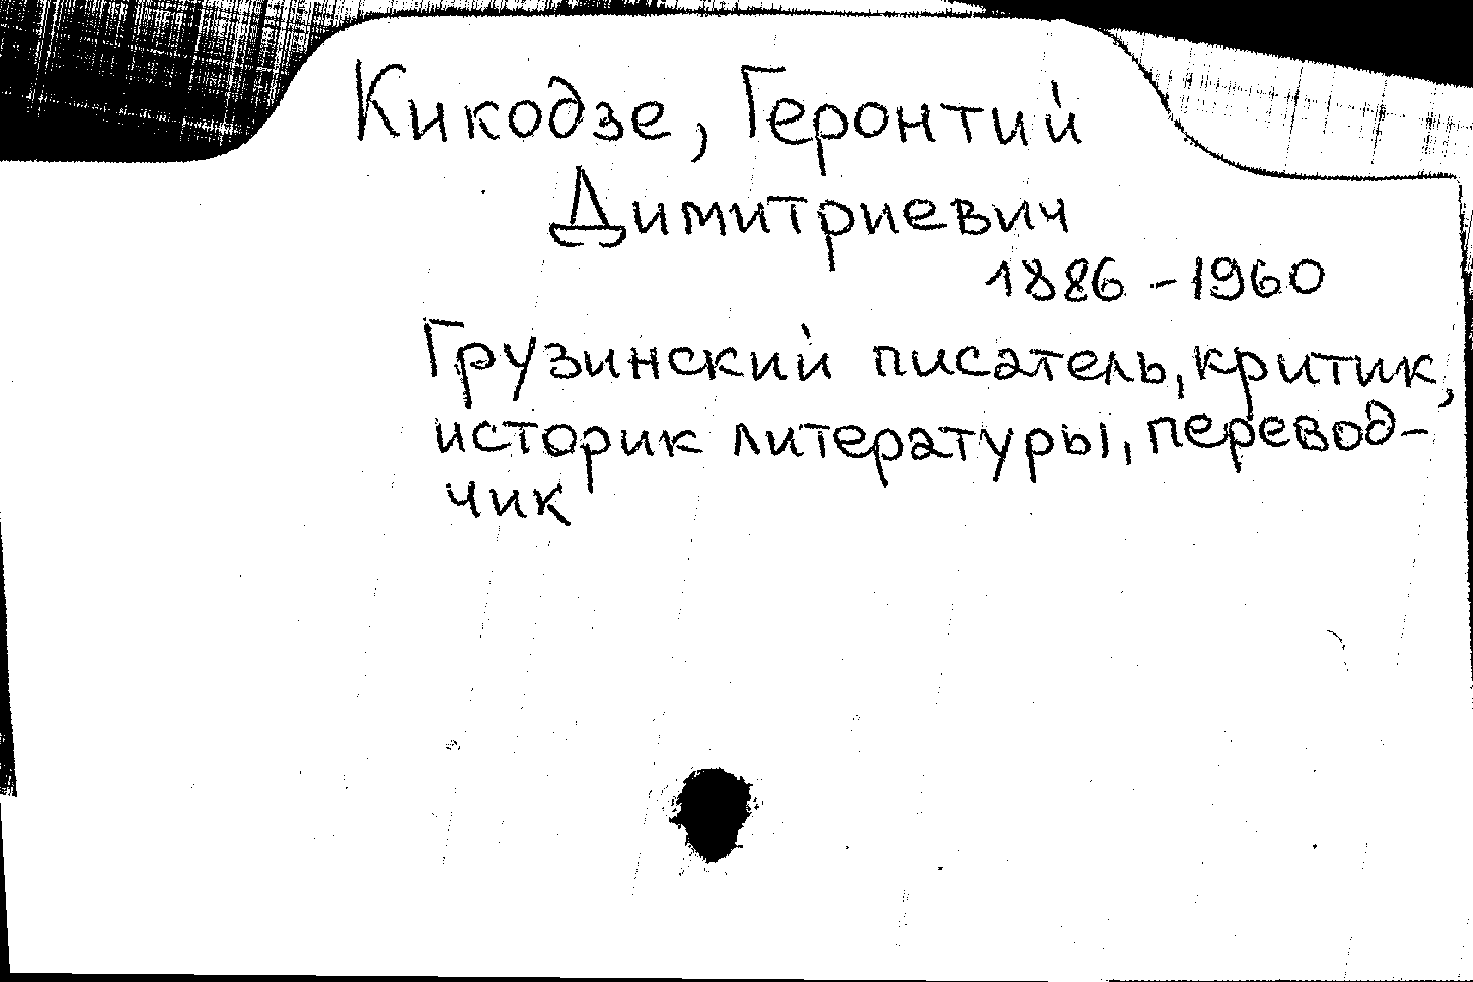 Кикодзе, Геронтий
Димитриевич
1886 - 1960
Грузинский писатель, критик,
историк литературы, перевод-
чик